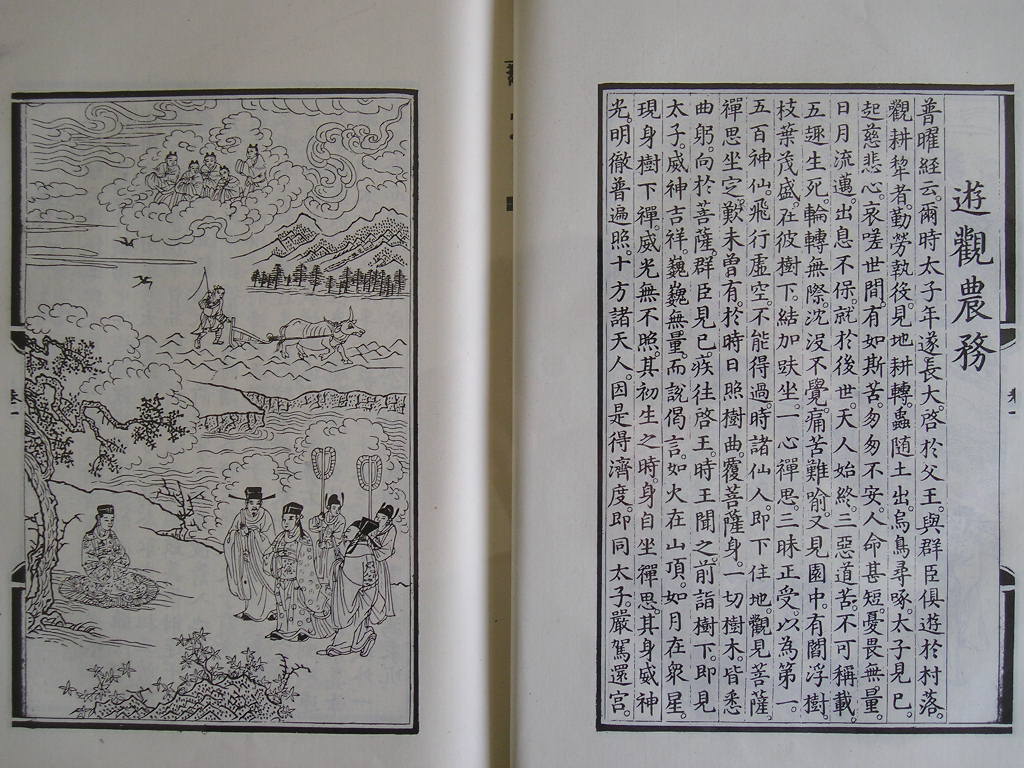 遊觀農務
普曜經云。爾時太子年遂長大。啓於父王。與群臣俱遊於村落。
觀耕犂者。勤勞執役。見地耕轉。蟲随土出。烏鳥尋啄。太子見已。
起慈悲心。哀嗟世間。有如斯苦。匆匆不安。人命甚短。憂畏無量。
日月流邁。出息不保。就於後世。天人始終。三惡道苦。不可稱載。
五趣生死。輪轉無際。沈没不覺。痛苦難喻。又見園中。有閻浮樹。
枝葉茂盛。在彼樹下。結加趺坐。一心禪思。三昧正受。以為第一。
五百神仙。飛行虛空。不能得過。時諸仙人。即下住地。觀見菩薩。
禪思坐定。歎未曾有。於時日照。樹曲覆菩薩身。一切樹木。皆悉
曲躬。向於菩薩。群臣見已。疾往啓王。時王聞之。前詣樹下。即見
太子。威神吉祥。巍巍無量。而說偈言。如火在山頂。如月在衆星。
現身樹下禪。威光無不照。其初生之時。身自坐禪思。其身威神
光。明徹普遍照。十方諸天人。因是得濟度。即同太子。嚴駕還宮。